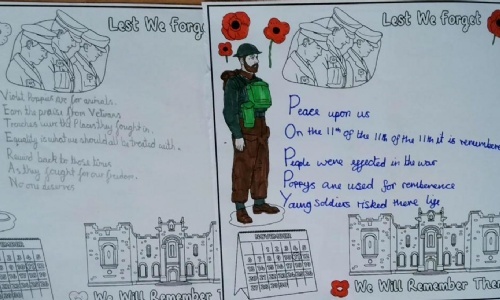 Lest We Forg
Violet Poppies are for animals.
Earn the praise from Veterans
Trenches were the Places they fought in.
Equality is what we should all be treated with.
Reward back to those times
As they fought for our freedom.
No one deserves
We Will Remember T
Lest We Forget
Peace upon us
On the 11th of the 11th of the 11th it is remembere
People were effected in the war
Poppys are used for rememberence
Young soldiers risked there life
NOVEMBER
We Will Remember The